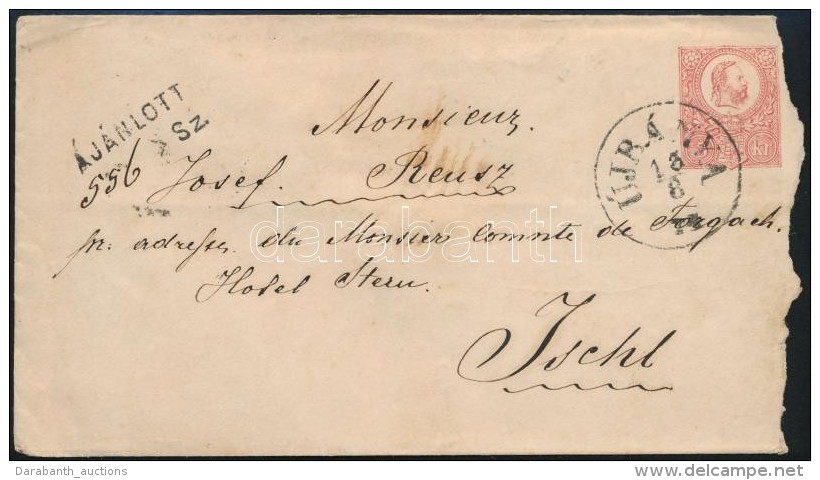 AJÁNLOTT
Sz.
556
Monsieur
Josef Reusz
pr: adresse du Monsier Comnte de Forgach.
Hotel Stern.
Ischl
ÚJBÁNYA
13
8
kr
darabanth
Darabanth_auctions
delcampe.net